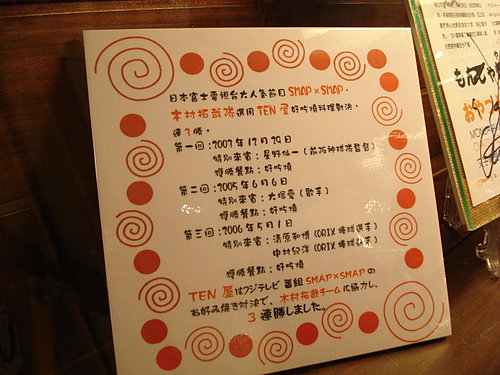 日本富士電視台大人氣節目 SMAP×SMAP，
木村拓哉隊選用 TEN 屋好吃燒料理對決，
連 3 勝，
第一回：2003 年 12 月 29 日
特別來賓：星野仙一（前阪神球隊監督）
獲勝餐點：好吃燒
第二回：2005 年 6 月 6 日
特別來賓：大塚愛（歌手）
獲勝餐點：好吃燒
第三回：2006 年 5 月 1 日
特別來賓：清原和博（ORIX 棒球選手）
中村紀洋（ORIX 棒球選手）
獲勝餐點：好吃燒
TEN 屋はフジテレビ 番組 SMAP×SMAP の
お好み焼き対決で、木村拓哉チームに協力し、
3 連勝しました。